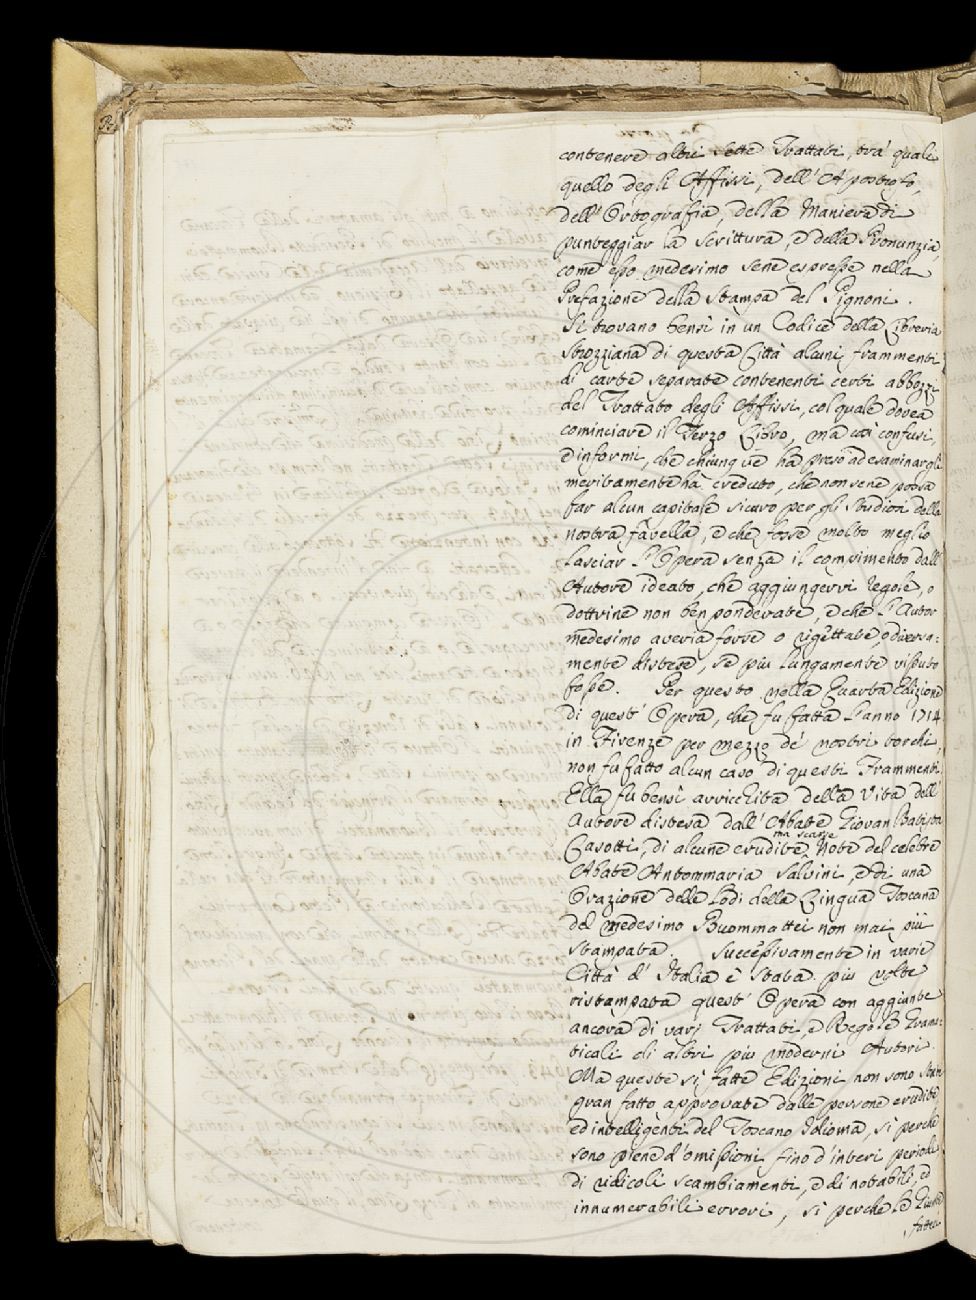 contenere altri sette Trattati, tra' quali
quello degli Affissi, dell'Apostrofo,
dell'Ortografia, della Maniera di
punteggiar la scrittura, e della Pronunzia,
come esso medesimo sene espresse nella
Prefazione della stampa del Pignoni.
Si trovano bensì in un Codice della Libreria
Strozziana di questa Città alcuni frammenti
di carte separate contenenti certi abbozzi
del Trattato degli Affissi, col quale dovea
cominciare il Terzo Libro, ma così confusi,
e informi, che chiunque ha preso ad esaminargli
meritamente hà creduto, che non sene possa
far alcun capitale sicuro per gli studiosi della
nostra favella, e che fosse molto meglio
lasciar l'Opera senza il compimento dall'
Autore ideato, che aggiungervi regole, o
dottrine non ben ponderate, e che l'Autor
medesimo averia forse o rigettate, o diversa:
mente distese, se più lungamente vissuto
fosse. Per questo nella Quarta Edizione
di quest'Opera, che fu fatta l'anno 1714
in Firenze per mezzo de' nostri torchi,
non fu fatto alcun caso di questi Frammenti.
Ella fu bensì arricchita della Vita dell'
Autore distesa dall'Abate Giovan Batista
Casotti, di alcune erudite, ma scarse Note del celebre
Abate Antommaria Salvini, e di una
Orazione delle Lodi della Lingua Toscana
del medesimo Buommattei non mai più
stampata. Successivamente in varie
Città d'Italia è stata più volte
ristampata quest'Opera con aggiunte
ancora di varj Trattati, e Regole Gram:
ticali di altri più moderni Autori.
Ma queste sì fatte Edizioni non sono state
gran fatto approvate dalle persone erudite,
ed intelligenti del Toscano Idioma, sì perchè
sono piene d'omissioni fino d'interi periodi
di ridicoli scambiamenti, e di notabili, ed
innumerabili errori, sì perchè le